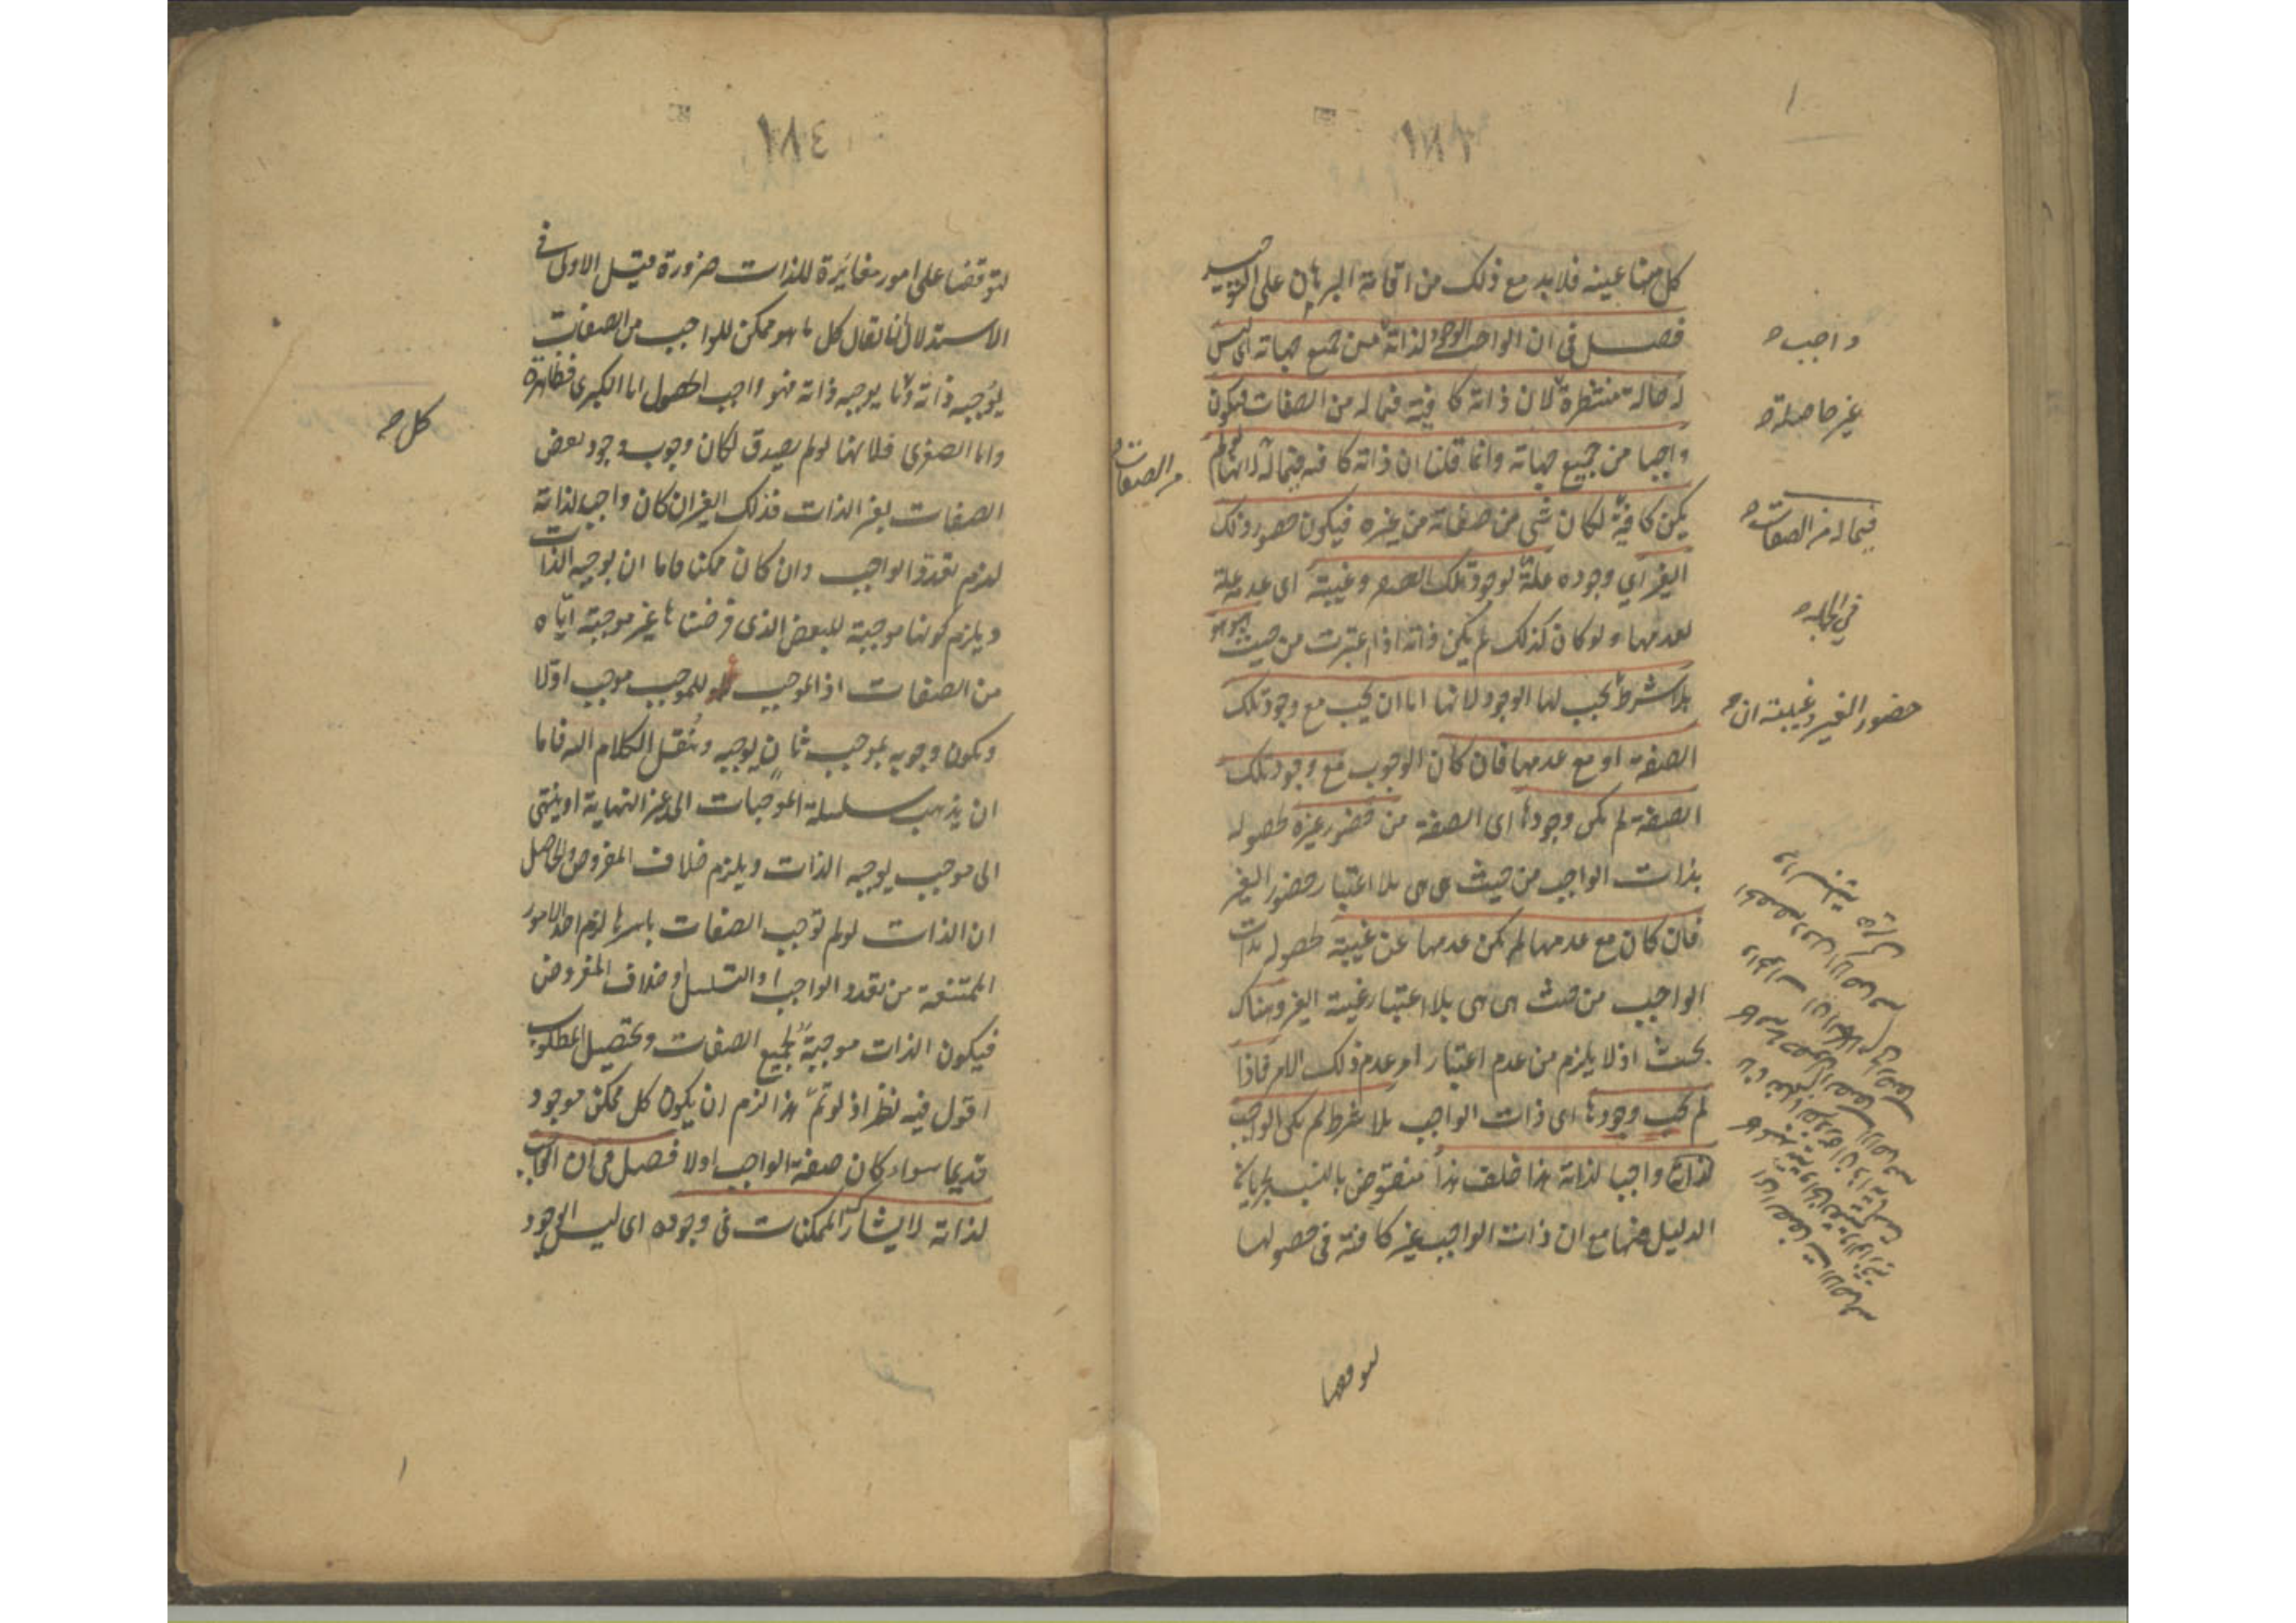 ١٨٣
كل منها عينه فلا بد مع ذلك من اقامة البرهان على التوحيد
فصل فى ان الواجب الوجود لذاته من جميع جهاته اى ليس
له حالة منتظرة لان ذاته كافية فيما له من الصفات فيكون
واجبا من جميع جهاته وانما قلنا ان ذاته كافيه فيما له لانها لو لم
يكن كافية لكان شى من صفاته من غيره فيكون حضور ذلك
الغير اي وجوده علة لوجود تلك الصفه وغيبته اى عدمه علة
لعدمها ولو كان كذلك لم يكن ذاته اذا اعتبرت من حيث هى هى
بلا شرط يجب لها الوجود لانها اما ان يجب مع وجود تلك
الصفه او مع عدمها فان كان الوجوب مع وجود تلك
الصفة لم يكن وجودها اى الصفة من حضور غيره لحصوله
بذات الواجب من حيث هى هى بلا اعتبار حضور الغير
فان كان مع عدمها لم يكن عدمها عن غيبة لحصوله بذات
الواجب من حيث هى هى بلا اعتبار غيبة الغير وهناك
بحث اذ لا يلزم من عدم اعتبار امر عدم ذلك الامر فاذا
لم يجب وجودها اى ذات الواجب بلا شرط لم يكن الواجب
لذاته واجبا لذاته هذا خلف هذا منقوض بالنسب لجريان
الدليل فيها مع ان ذات الواجب غير كافية فى حصولها
لتوقفها
واجب
غير حاصلة
فيما له من الصفات
فى الجملة
حضور الغير وغيبته ان
من الصفات
١٨٤
لتوقفها على امور مغائرة للذات ضرورة قيل الاولى فى
الاستدلال ان يقال كل ما هو ممكن للواجب من الصفات
يوجبه ذاته وما يوجبه ذاته فهو واجب الحصول اما الكبرى فظاهرة
واما الصغرى فلانها لو لم يصدق لكان وجوب وجود بعض
الصفات بغير الذات فذلك الغير ان كان واجب لذاته
لزم تعدد الواجب وان كان ممكنا فاما ان يوجبه الذات
ويلزم كونها موجبة للبعض الذى فرضناها غير موجبة اياه
من الصفات اذ الموجب للموجب موجب اولا
ويكون وجوبه بموجب ثان يوجبه وننقل الكلام اليه فاما
ان يذهب سلسلة الموجبات الى غير النهاية او ينتهى
الى موجب يوجبه الذات ويلزم خلاف المفروض والحاصل
ان الذات لو لم توجب الصفات باسرها لزم احد الامور
الممتنعة من تعدد الواجب او التسلسل او خلاف المفروض
فيكون الذات موجبة لجميع الصفات ويحصل المطلوب
اقول فيه نظر اذ لو تم هذا لزم ان يكون كل ممكن موجود
قديما سواء كان صفة الواجب اولا فصل فى ان الواجب
لذاته لا يشارك الممكنات فى وجوده اى ليس الوجود
كل